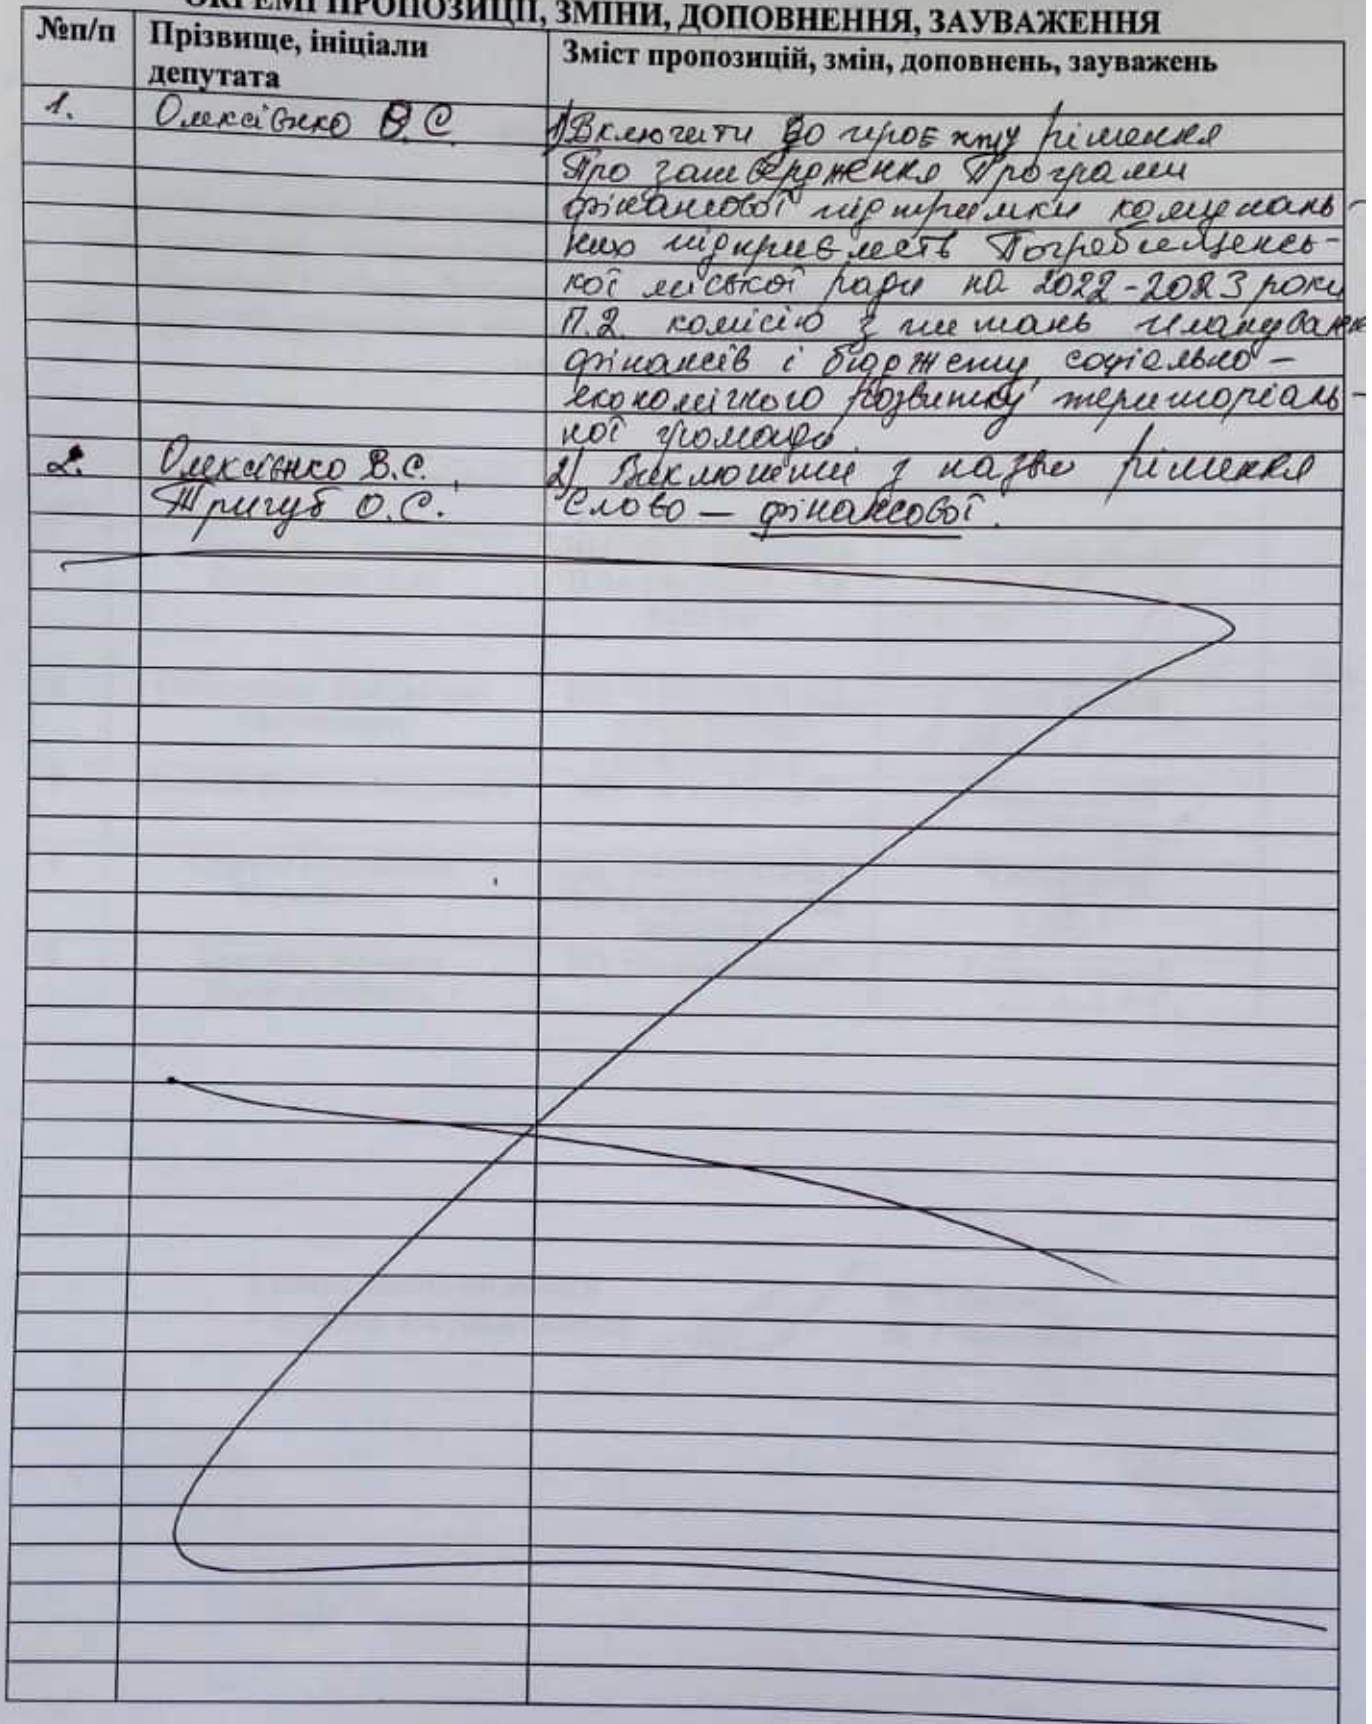 ОКРЕМІ ПРОПОЗИЦІЇ, ЗМІНИ, ДОПОВНЕННЯ, ЗАУВАЖЕННЯ
№п/п Прізвище, ініціали депутата Зміст пропозицій, змін, доповнень, зауважень
1. Олексієнко В.С. 1) Включити до проєкту рішення
Про затвердження Програми
фінансової підтримки комуналь-
них підприємств Погребищенсь-
кої міської ради на 2022-2023 роки
П.2. комісію з питань плануванн
фінансів і бюджету соціально-
економічного розвитку територіаль-
ної громади.
2. Олексієнко В.С., 2) Виключити з назви рішення
Тригуб О.С. Слово — фінансової.